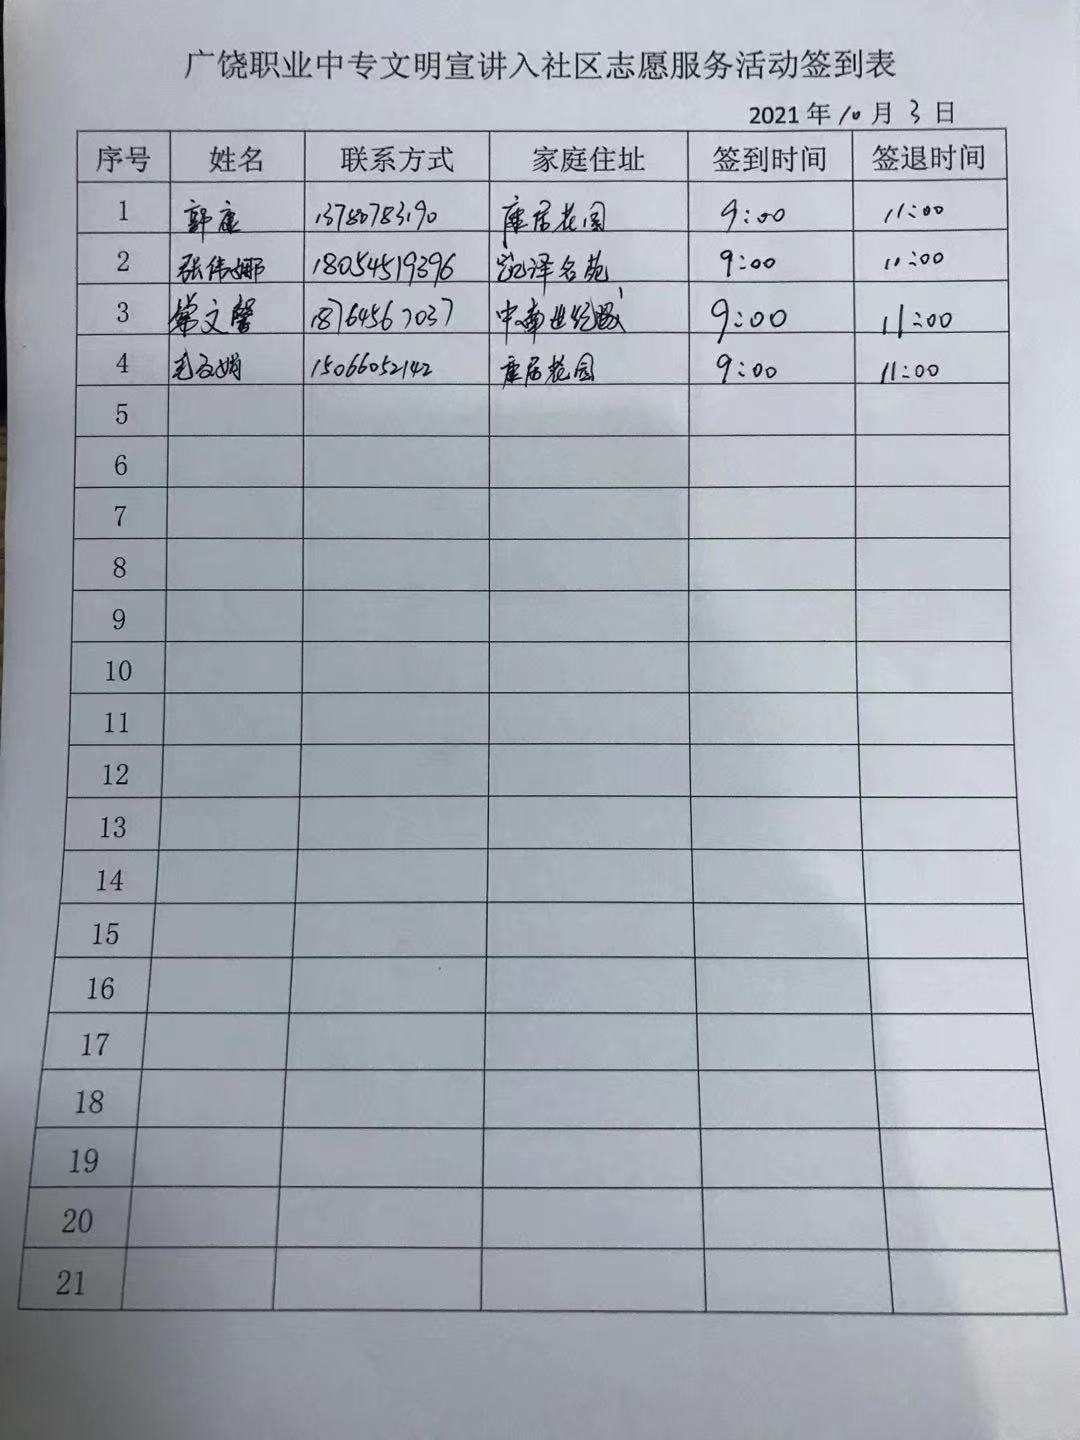 广饶职业中专文明宣讲入社区志愿服务活动签到表
2021 年 10 月 3 日
序号 姓名 联系方式 家庭住址 签到时间 签退时间
1 郭康 康居花园 9:00 11:00
2 张伟娜 18054519396 凯泽名苑 9:00 11:00
3 常文馨 18764567037 中南世纪城 9:00 11:00
4 15066052142 康居花园 9:00 11:00
5
6
7
8
9
10
11
12
13
14
15
16
17
18
19
20
21